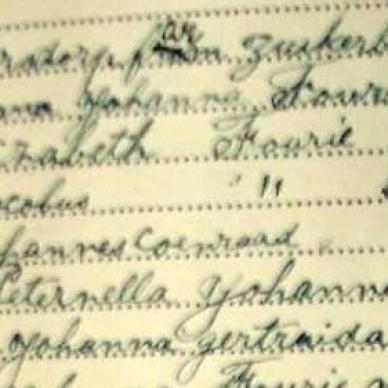 ar
Zuikerb
Yohanna Four
zabeth Fourie
acobus "
hannes Coenraad
Peternella Yohann
Yohanna gertruida
Fourie